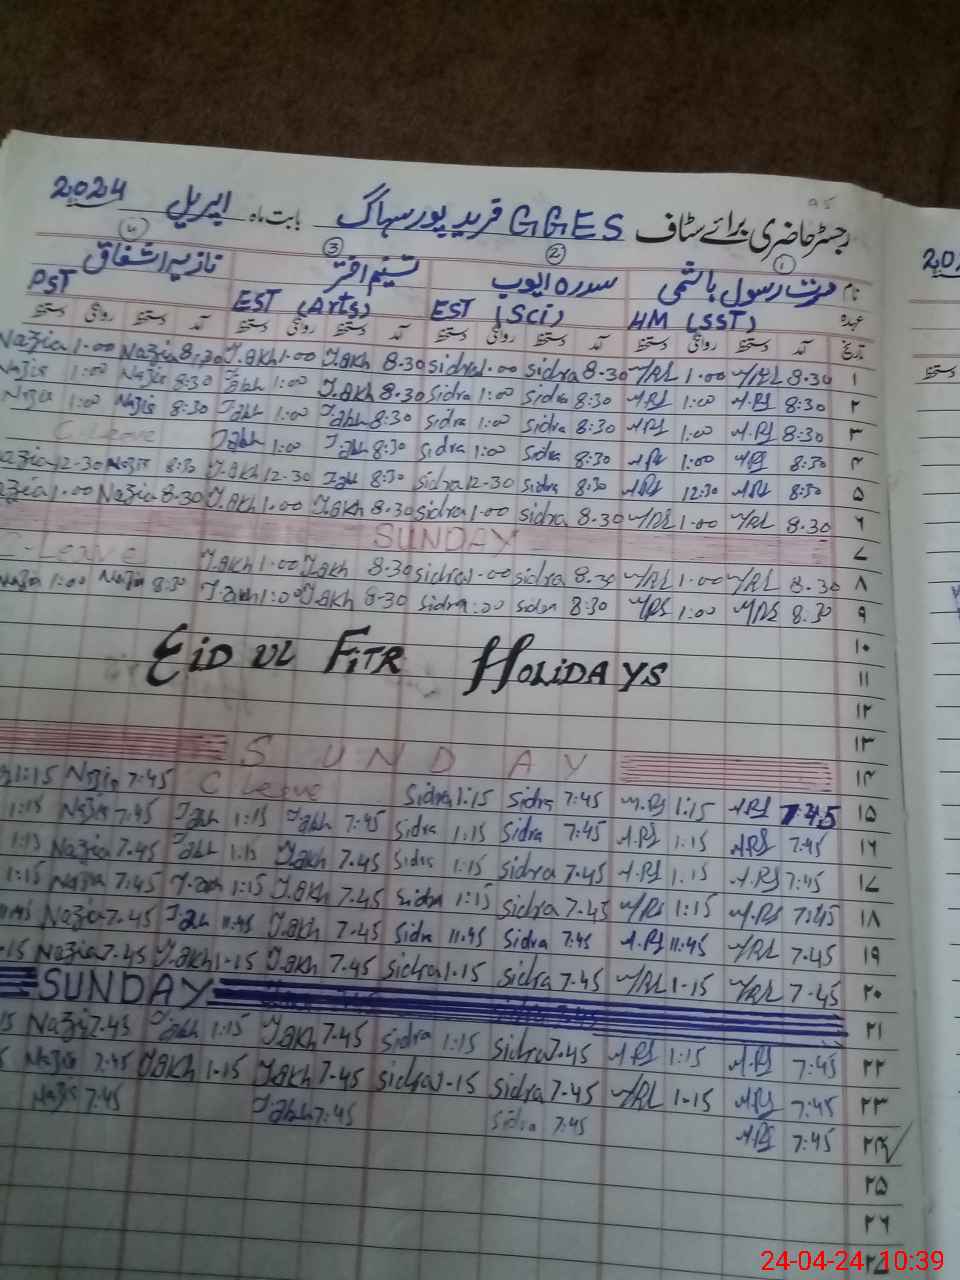 رجسٹر حاضری برائے سٹاف GGES فرید پور سہاگ بابت ماہ اپریل 2024
① ② ③ ④
نام رسول ہاشمی سدرہ ایوب تسنیم اختر نازیہ اشفاق
عہدہ HM (SST) EST (Sci) EST (Arts) PST
تاریخ آمد دستخط روانگی دستخط آمد دستخط روانگی دستخط آمد دستخط روانگی دستخط آمد دستخط روانگی دستخط
۱ 8.30 1.00 8.30 sidra 1.00 sidra 8.30 T.akh 1.00 T.akh 8.30 Nazia 1.00 Nazia
۲ 8:30 1:00 8:30 Sidra 1:00 Sidra 8.30 T.akh 1:00 8:30 Nazia 1:00
۳ 8:30 1:00 8:30 Sidra 1:00 Sidra 8:30 1:00 8:30 Nazia 1:00
۴ 8:30 1:00 8:30 Sidra 1:00 Sidra 8:30 1:00 C.Leave
۵ 8:30 12:30 8:30 Sidra 12-30 Sidra 8:30 T.akh 12-30 8:30 Nazia 12-30
۶ 8.30 1.00 8.30 sidra 1.00 sidra 8.30 T.akh 1.00 T.akh 8.30 Nazia 1.00
۷ SUNDAY
۸ 8.30 1.00 8.30 sidra 1.00 sidra 8.30 T.akh 1.00 T.akh C-Leave
۹ 8:30 1:00 8:30 sidra 1:00 sidra 8-30 T.akh 1:00 T.akh 8:30 Nazia 1:00
۱۰
۱۱ EID UL FITR HOLIDAYS
۱۲
۱۳
۱۴ SUNDAY
۱۵ 7:45 1:15 7:45 Sidra 1:15 Sidra C Leave 7:45 Nazia 1:15
۱۶ 7:45 1:15 7:45 Sidra 1:15 Sidra 7:45 1:15 7:45 Nazia 1:15
۱۷ 7:45 1.15 7.45 Sidra 1.15 Sidra 7.45 T.akh 1.15 7.45 Nazia 1:15
۱۸ 7:45 1:15 7.45 Sidra 1:15 Sidra 7.45 T.akh 1:15 T.akh 7:45 Nazia 1:15
۱۹ 7.45 11:45 7:45 Sidra 11.45 Sidra 7.45 T.akh 11.45 7.45 Nazia
۲۰ 7.45 1-15 7.45 sidra 1.15 sidra 7.45 T.akh 1.15 T.akh 7.45 Nazia
۲۱ SUNDAY
۲۲ 7:45 1:15 7.45 Sidra 1:15 Sidra 7.45 T.akh 1:15 7.45 Nazia
۲۳ 7:45 1-15 7.45 Sidra 1-15 sidra 7.45 T.akh 1-15 T.akh 7:45 Nazia
۲۴ 7:45 7:45 Sidra 7:45 7:45 Nazia
۲۵
۲۶
24-04-24 10:39